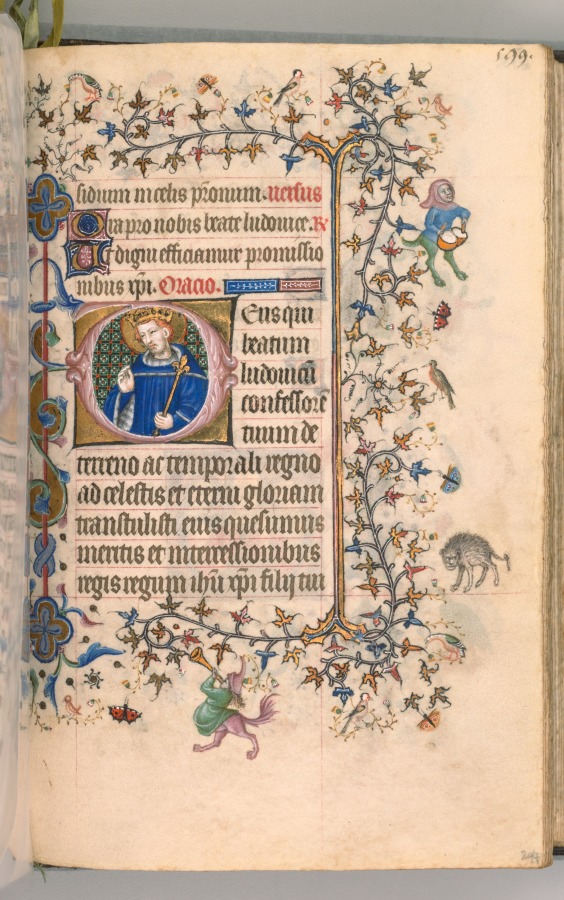 599.
sidium in celis pronum. uersus
Ora pro nobis beate ludouice. R
Et digni efficiamur promissio
nibus xpi. Oracio.
Deus qui
beatum
ludouicū
confessorē
tuum de
terreno ac temporali regno
ad celestis et eterni gloriam
transtulisti eius quesumus
meritis et intercessionibus
regis regum ihu xpi filij tui